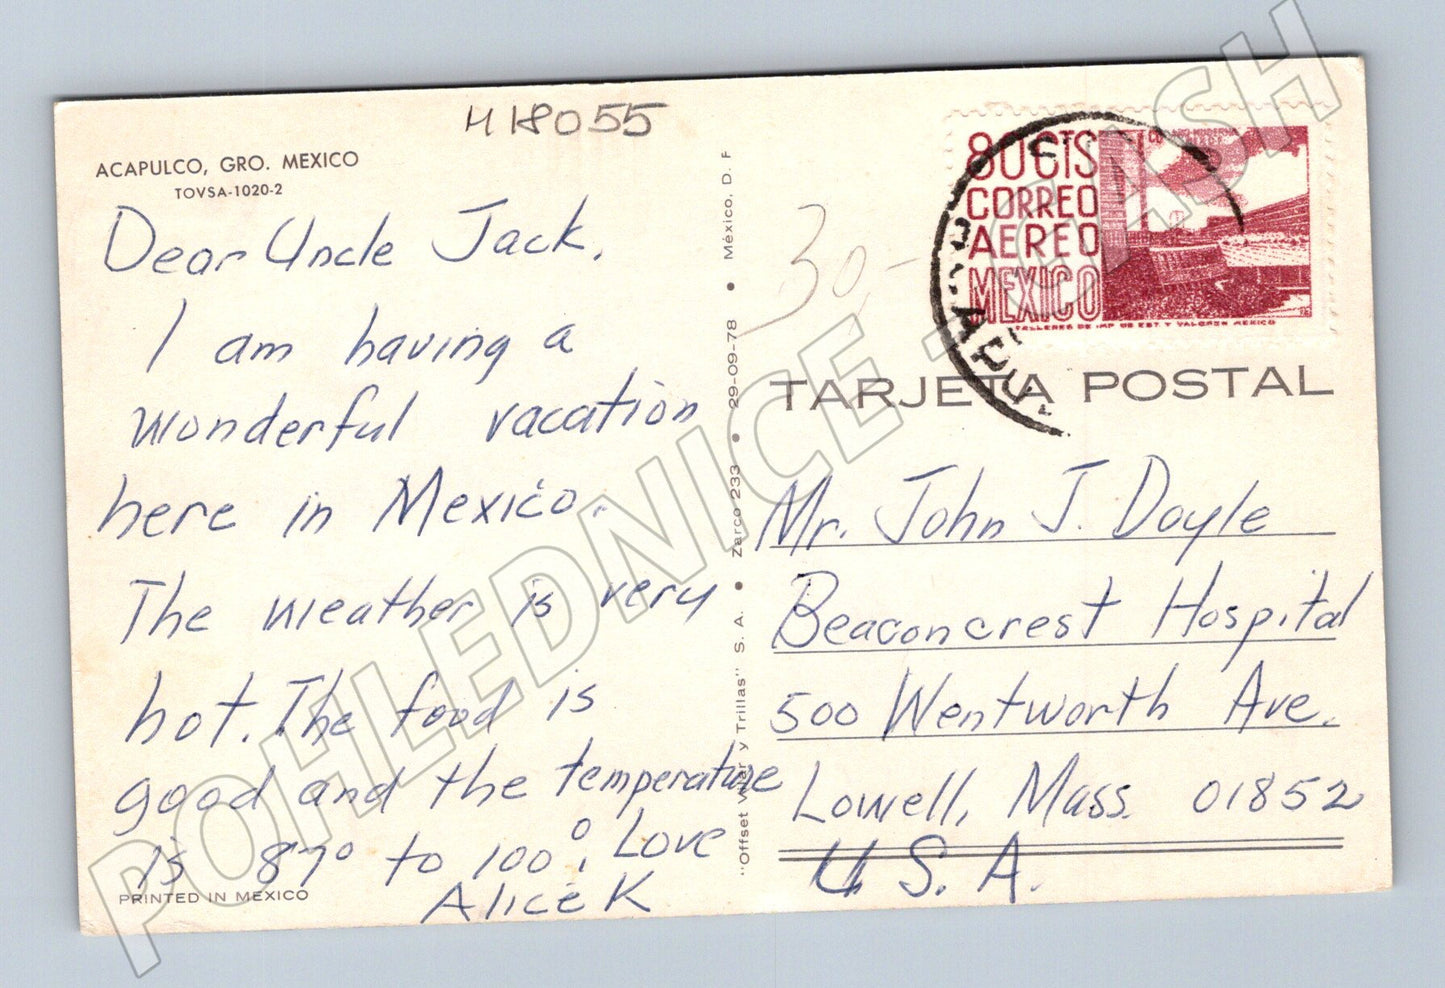 H18055
ACAPULCO, GRO. MEXICO
TOVSA-1020-2
Dear Uncle Jack,
I am having a
wonderful vacation
here in Mexico.
The weather is very
hot. The food is
good and the temperature
is 87° to 100°. Love
Alice K
PRINTED IN MEXICO
"Offset y Trillas" S. A. • Zarco 233 • 29-09-78 • México, D. F
30,-
80 CTS
CORREO
AEREO
MEXICO
TALLERES DE IMP DE EST. Y VALORES MEXICO
TARJETA POSTAL
Mr. John J. Doyle
Beaconcrest Hospital
500 Wentworth Ave.
Lowell, Mass. 01852
U. S. A.
POHLEDNICE - CASH